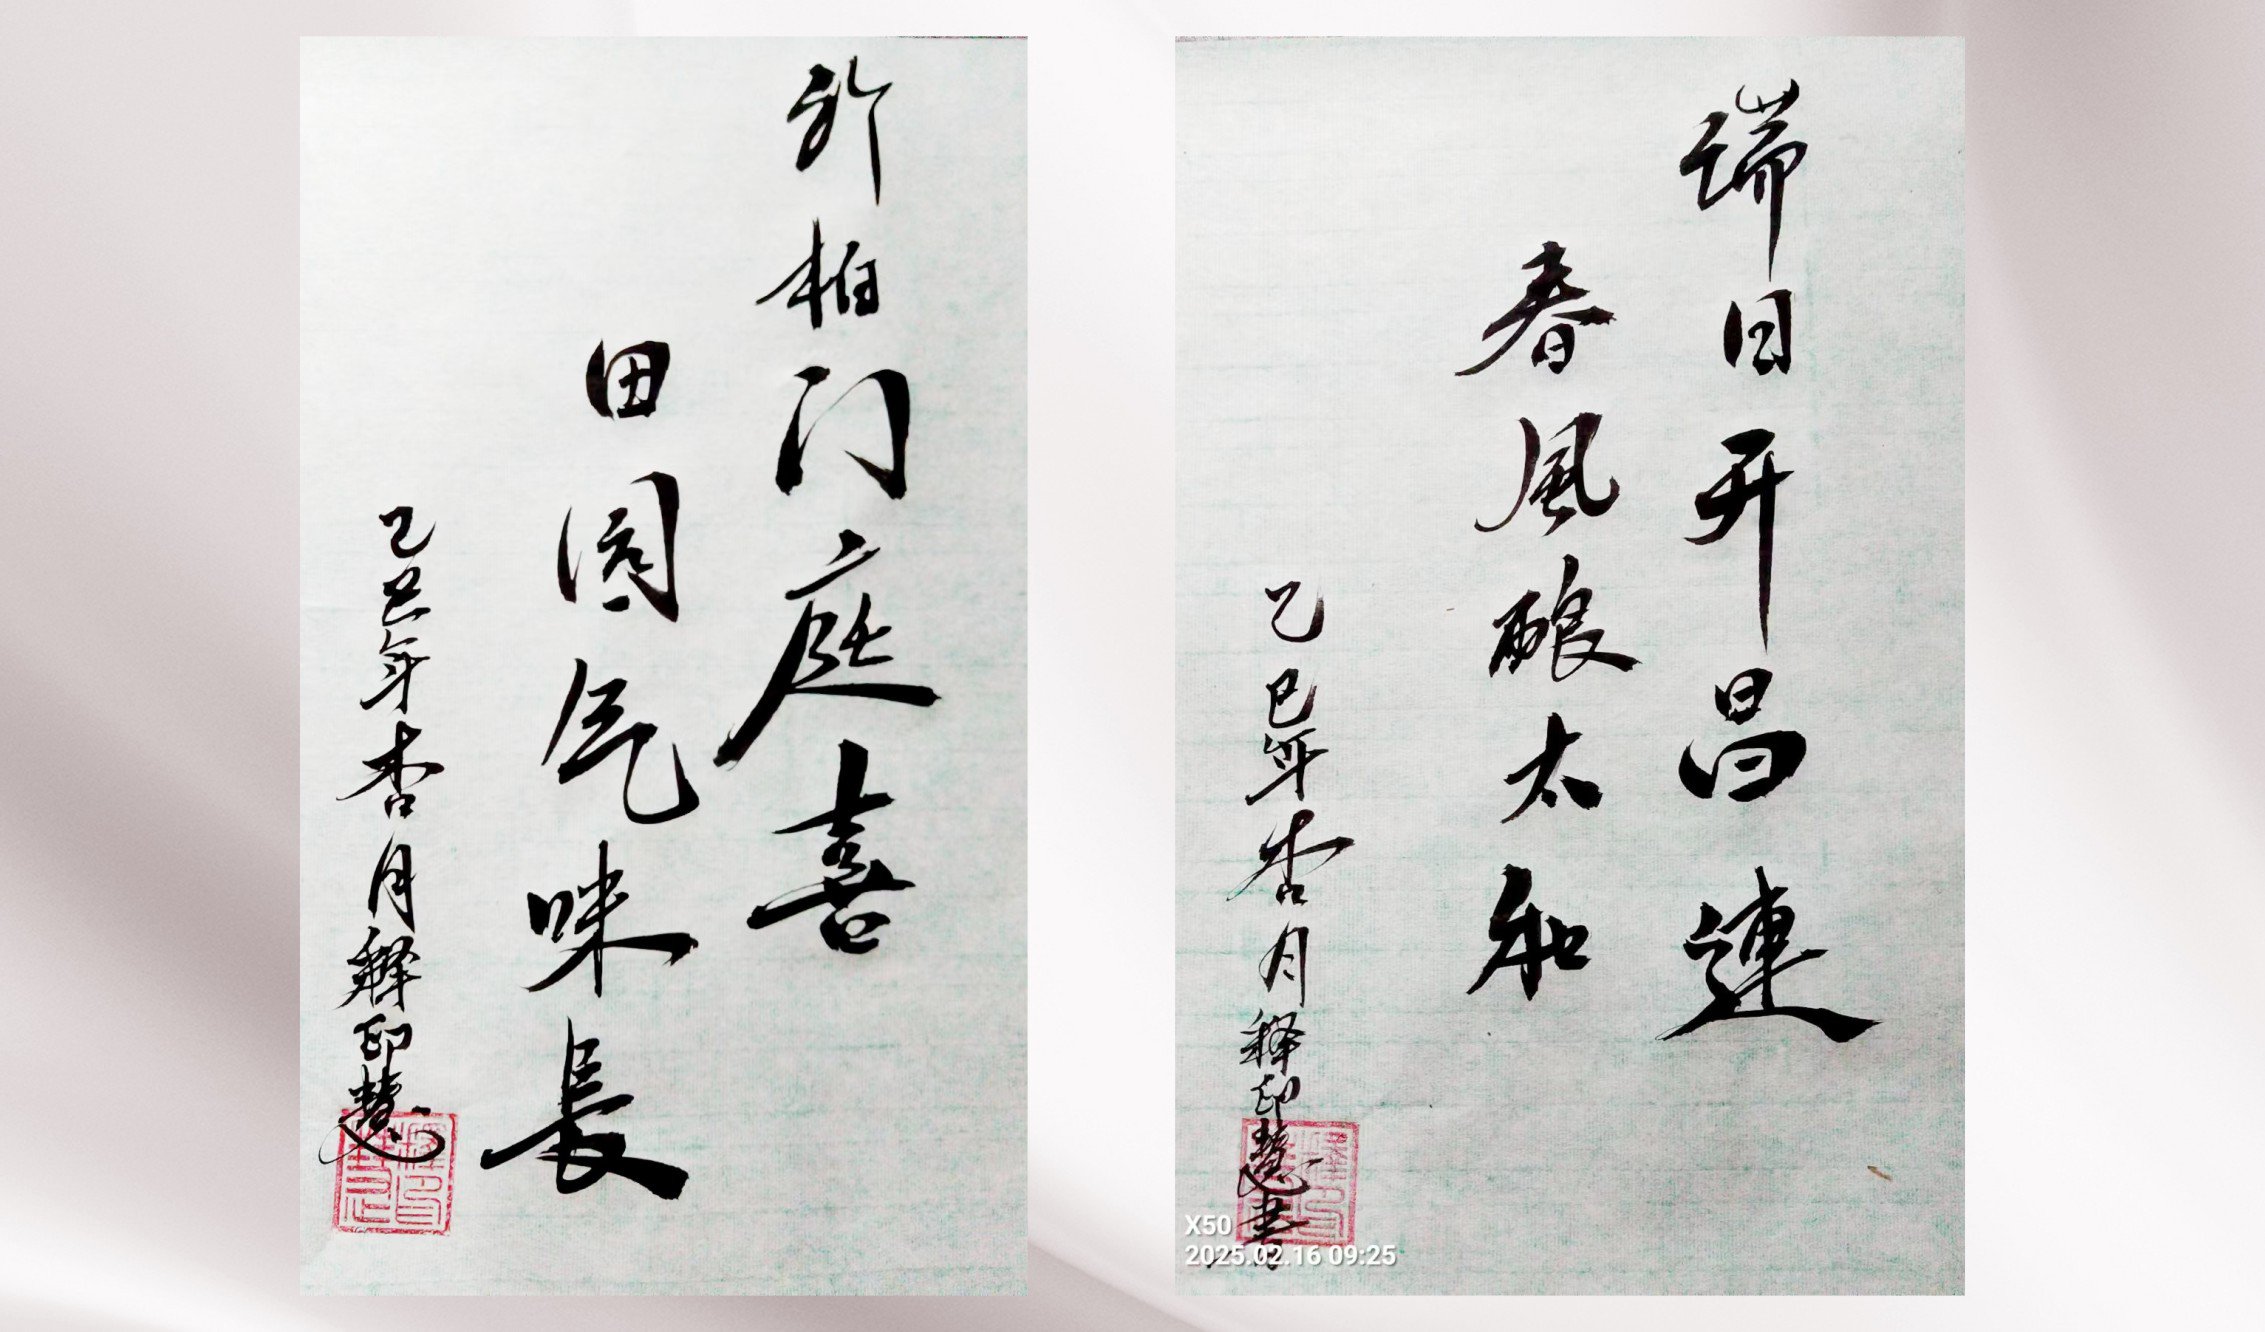 门庭喜
田园气味長
乙巳年杏月釋印慧
瑞日开昌連
春風酿太和
乙巳年杏月释印慧书
X50
2025.02.16 09:25